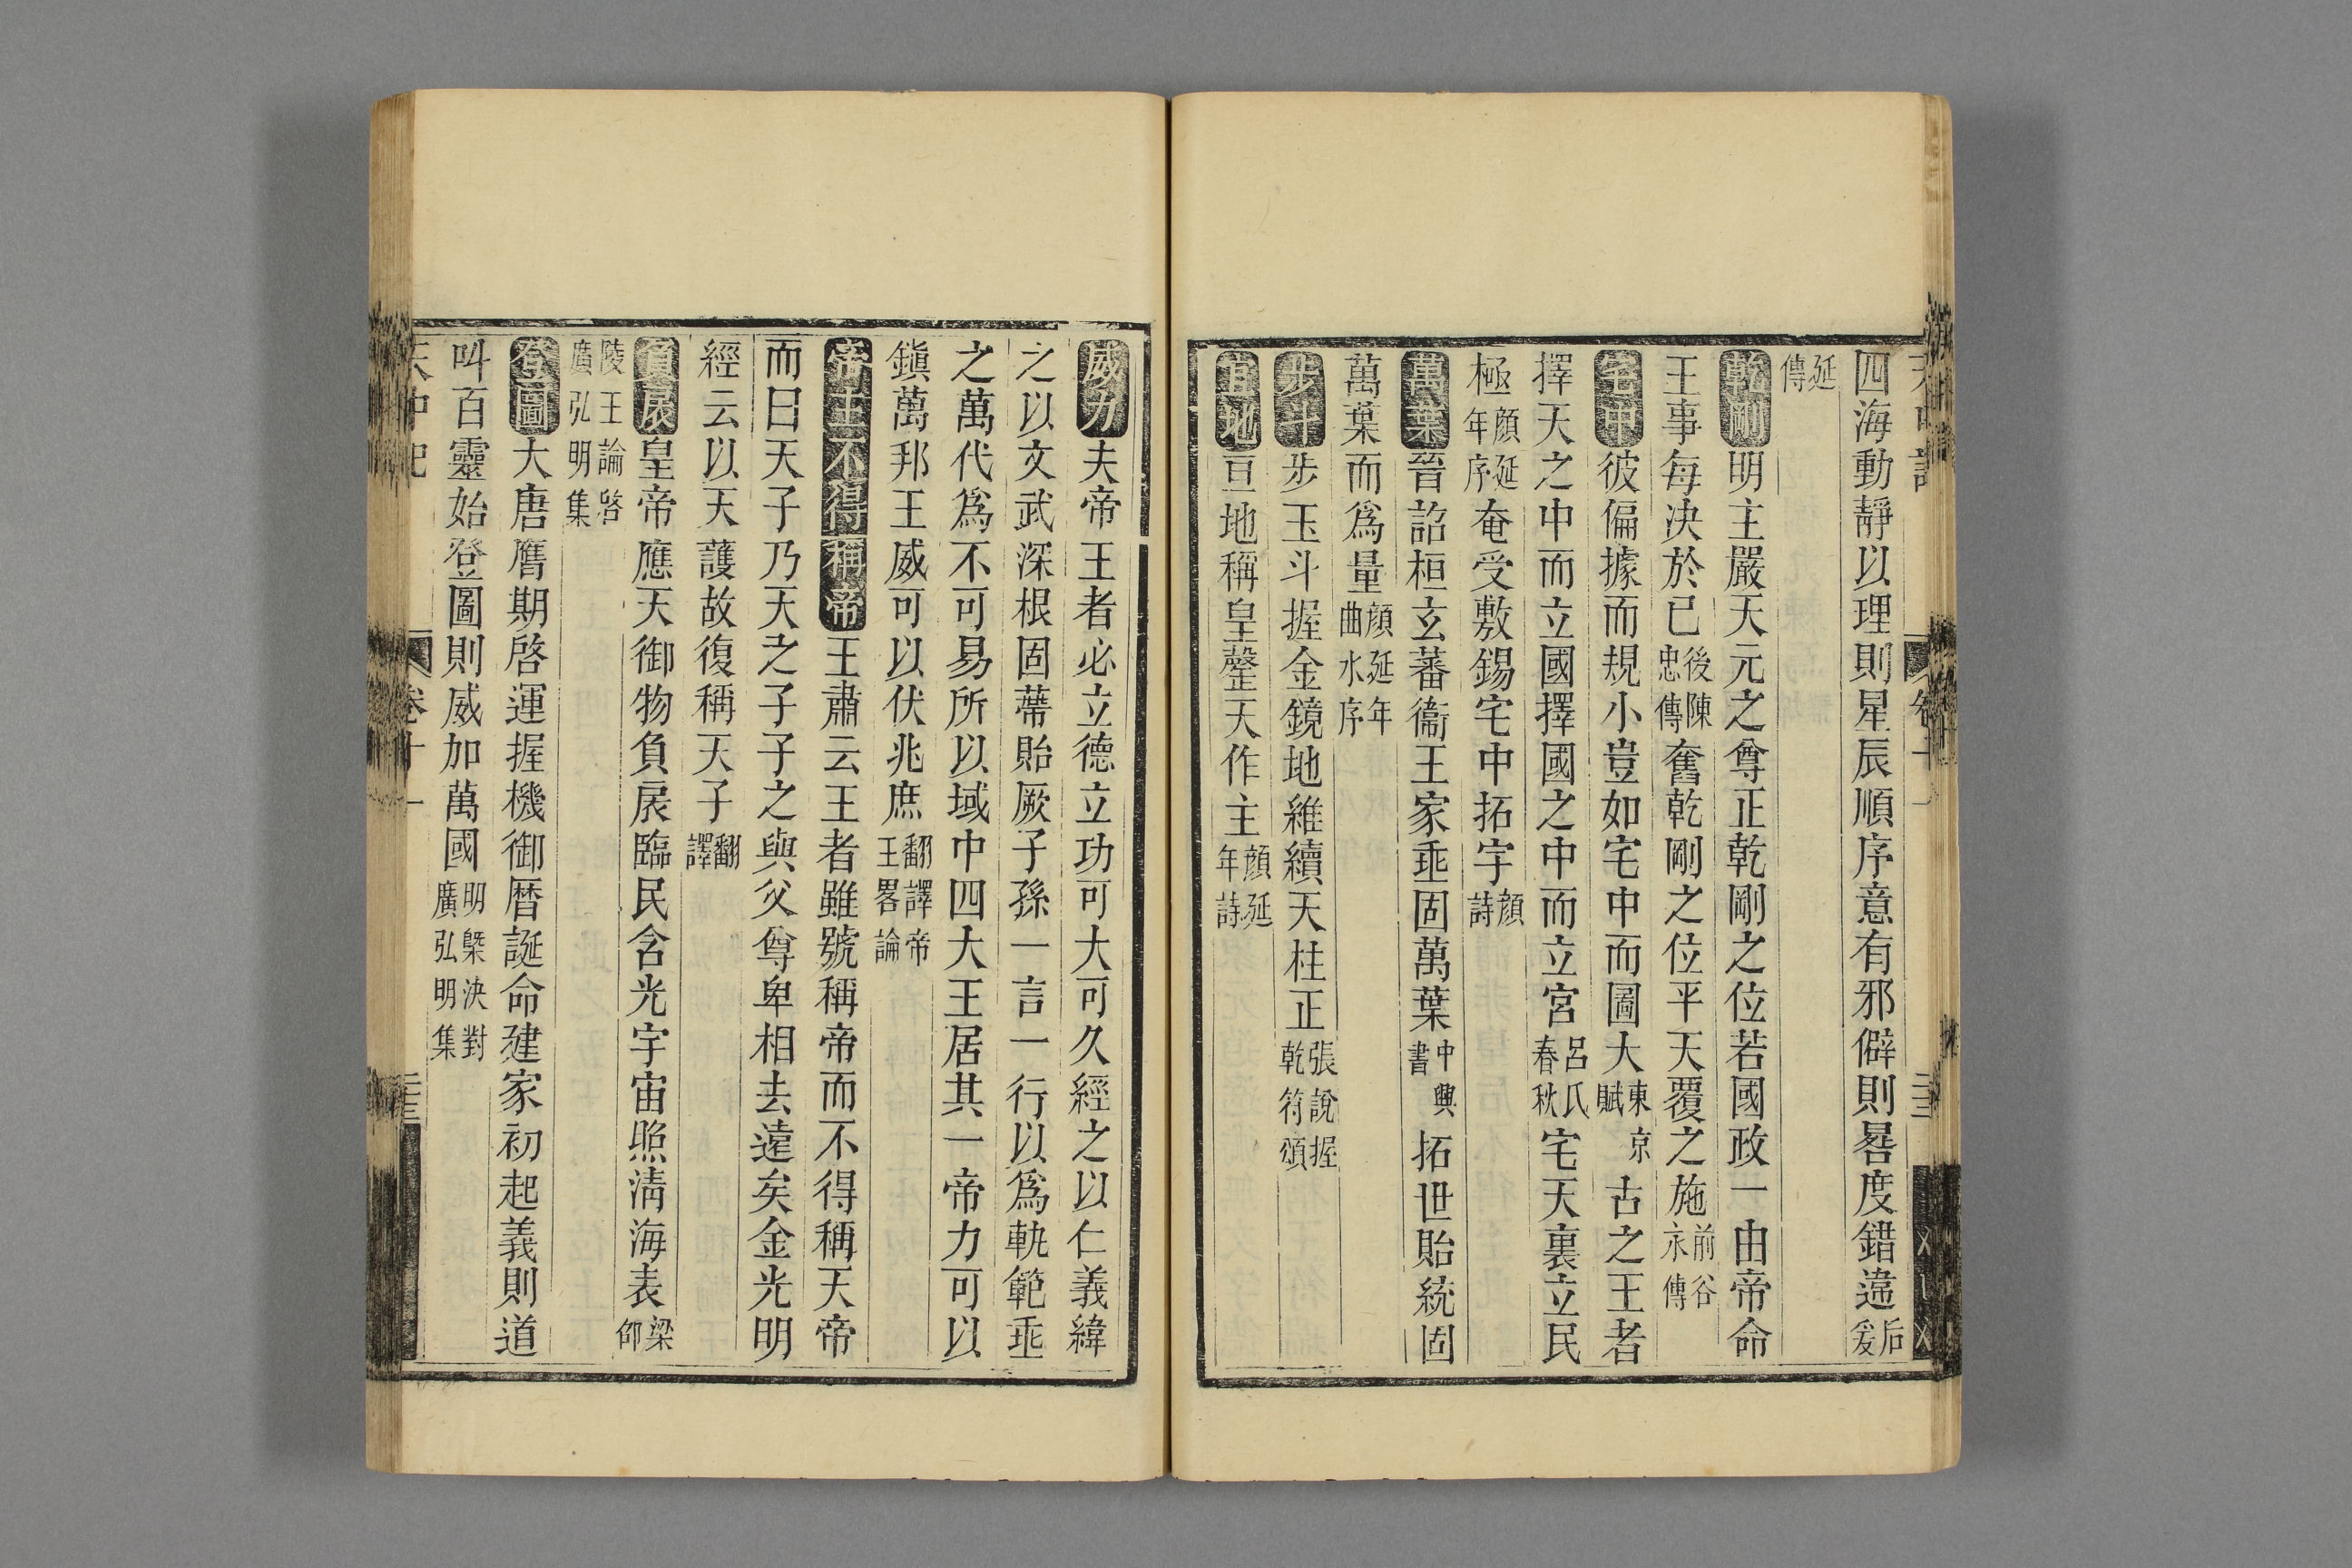 四海動靜以理則星辰順序意有邪僻則晷度錯違后爰
延傳
乾剛明主嚴天元之尊正乾剛之位若國政一由帝命
王事每決於已後陳忠傳奮乾剛之位平天覆之施前谷永傳
宅中彼偏據而規小豈如宅中而圖大東京賦古之王者
擇天之中而立國擇國之中而立宮呂氏春秋宅天裏立民
極顏延年序奄受敷錫宅中拓宇顏詩
萬葉晉詔桓玄蕃衞王家垂固萬葉中興書拓世貽統固
萬葉而爲量顏延年曲水序
步斗步玉斗握金鏡地維續天柱正張說握乾符頌
亘地亘地稱皇罄天作主顏延年詩
威力夫帝王者必立德立功可大可久經之以仁義緯
之以文武深根固蔕貽厥子孫一言一行以爲軌範垂
之萬代爲不可易所以域中四大王居其一帝力可以
鎭萬邦王威可以伏兆庶翻譯帝王畧論
帝王不得稱帝王肅云王者雖號稱帝而不得稱天帝
而曰天子乃天之子子之與父尊卑相去遠矣金光明
經云以天護故復稱天子翻譯
負扆皇帝應天御物負扆臨民含光宇宙照淸海表梁邵
陵王論啓廣弘明集
登圖大唐膺期啓運握機御曆誕命建家初起義則道
叫百靈始登圖則威加萬國明槩決對廣弘明集
天中記 卷十一